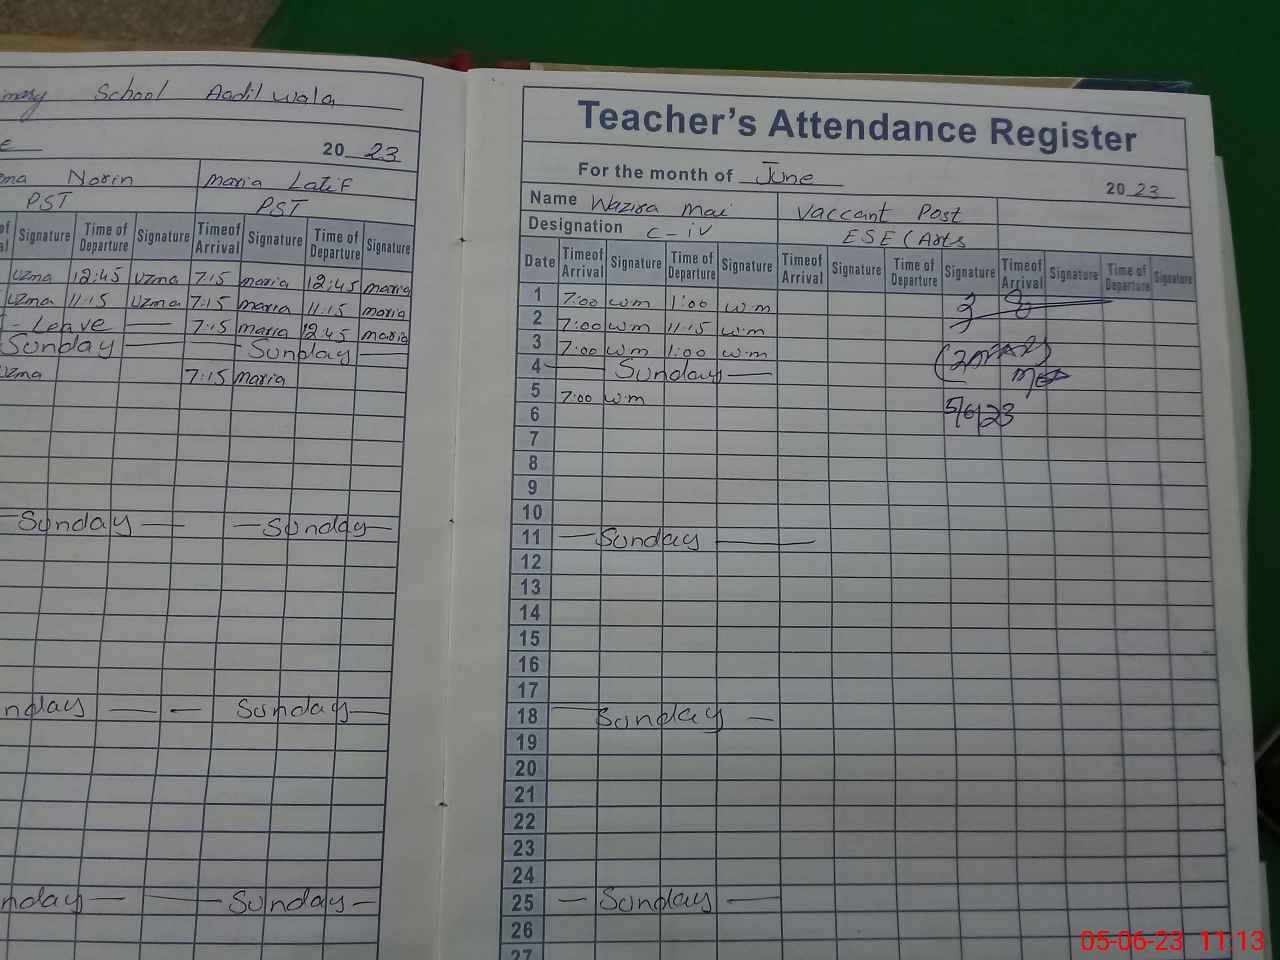 School Aadilwala
20 23
Norin Maria Latif
PST PST
Signature Time of Departure Signature Time of Arrival Signature Time of Departure Signature
Uzma 12:45 Uzma 7:15 maria 12:45 maria
Uzma 11:15 Uzma 7:15 maria 11:15 maria
- Leave — 7:15 maria 12:45 maria
Sunday — — Sunday —
Uzma 7:15 maria
Sunday — — Sunday —
Sunday —
Sunday —
Teacher's Attendance Register
For the month of June 20 23
Name Wazira Mai Vaccant Post
Designation C-iv ESE (Arts
Date Time of Arrival Signature Time of Departure Signature Time of Arrival Signature Time of Departure Signature Time of Arrival Signature Time of Departure Signature
1 7:00 w.m 1:00 w.m
2 7:00 w.m 11:15 w.m
3 7:00 w.m 1:00 w.m
4 — Sunday —
5 7:00 w.m
5/6/23
6
7
8
9
10
11 — Sunday —
12
13
14
15
16
17
18 — Sunday —
19
20
21
22
23
24
25 — Sunday —
26
27
05-06-23 11:13